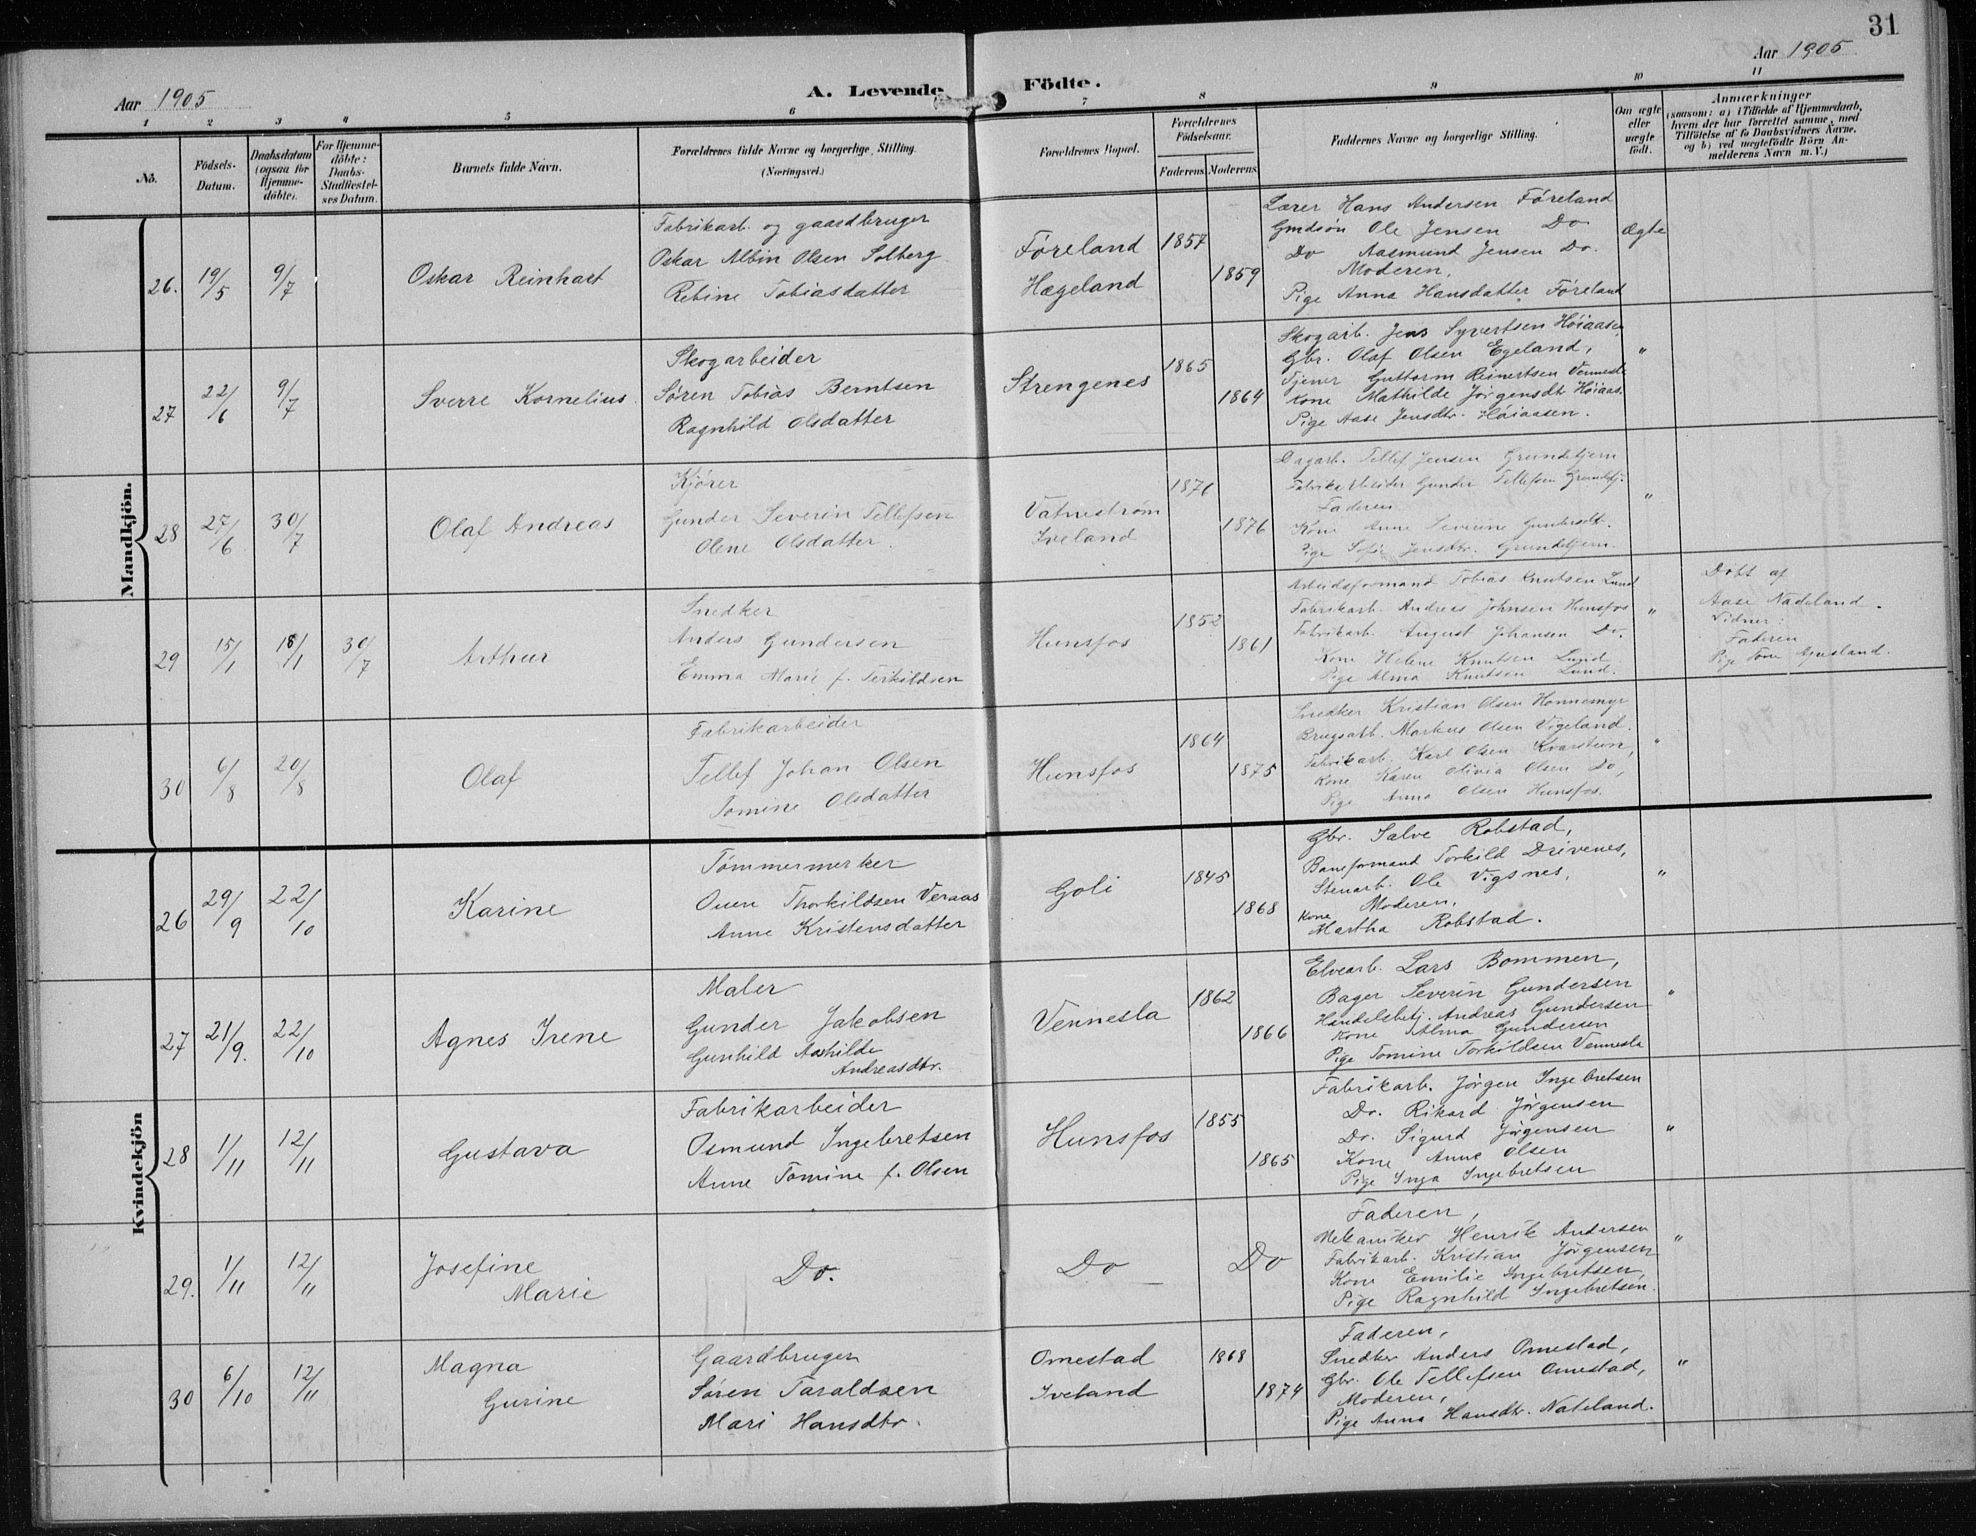 31
Aar 1905
A. Levende Födte.
Aar 1905
1 2 3 4 5 6 7 8 9 10 11
No.
Födsels-
Datum.
Daabsdatum
(ogsaa for
Hjemme-
döbte).
For Hjemme-
döbte:
Daabs-
Stadfæstel-
ses Datum.
Barnets fulde Navn.
Forældrenes fulde Navne og borgerlige Stilling.
(Næringsvei.)
Forældrenes Bopæl.
Forældrenes
Födselsaar.
Faderens
Moderens
Faddernes Navne og borgerlige Stilling.
Om ægte
eller
uægte
födt.
Anmærkninger
(saasom: a) i Tilfælde af Hjemmedaab,
hvem der har forrettet samme, med
Tilföielse af to Daabsvidners Navne,
og b) ved uægtefödte Börn An-
melderens Navn m. V.)
Mandkjön.
26. 19/5 9/7
Oskar Reinhart
Fabrikarb. og gaardbruger
Oskar Albin Olsen Solberg
Rebine Tobiasdatter
Føreland
Hægeland
1857
1859
Lærer Hans Andersen Føreland
Gmdsøn Ole Jensen Do
Do Aasmund Jensen Do.
Moderen,
Pige Anna Hansdatter Føreland
Ægte
27 22/6 9/7
Sverre Kornelius.
Skogarbeider
Søren Tobias Berntsen
Ragnhild Olsdatter
Strengenes
1865
1864
Skogarb. Jens Syvertsen Høiaasen
Gbr. Olaf Olsen Egeland,
Tjener Guttorm Reinertsen Vennesla
Kone Mathilde Jørgensdt Høiaas.
Pige Aase Jensdtr. Høiaasen.
"
28 27/6 30/7
Olaf Andreas
Kjører
Gunder Severin Tellefsen
Olene Olsdatter.
Vatnestrøm
Iveland
1876
1876
Dagarb. Tellef Jensen Grundetjern
Fabrikarbeider Gunder Tellefsen Grundetj.
Faderen
Kone Anne Severine Gundersdt.
Pige Sofie Jensdtr. Grundetjern.
"
29 15/1 18/1 30/7
Arthur
Snedker
Anders Gundersen
Emma Marie f. Terkildsen
Hunsfos
1852
1861
Arbeidsformand Tobias Knutsen Lund
Fabrikarb. Andreas Johnsen Hunsfos
Fabrikarb. August Johansen Do.
Kone Helene Knutsen Lund
Pige Alma Knutsen Lund.
"
Døbt af
Aase Nadeland.
Vidner:
Faderen
Pige Tone
30 6/8 20/8
Olaf
Fabrikarbeider
Tellef Johan Olsen
Tomine Olsdatter
Hunsfos
1864
1875
Snedker Kristian Olsen Honnemyr
Brugsarb. Markus Olsen Vigeland.
Fabrikarb. Karl Olsen Kvarstein,
Kone Karen Olivia Olsen Do,
Pige Anna Olsen Hunsfos.
"
Kvindekjön
26 29/9 22/10
Karine
Tømmermerker
Ouen Thorkildsen Veraas
Anne Kristensdatter
Goli
1845
1868
Gbr. Salve Robstad,
Baneformand Torkild Drivenes,
Stenarb. Ole Vigsnes,
Moderen,
Kone Martha Robstad.
"
27 21/9. 22/10
Agnes Irene
Maler
Gunder Jakobsen
Gunhild Aashilde
Andreasdtr.
Vennesla
1862
1866
Elvearb. Lars Bommen,
Bager Severin Gundersen
Handelsbetj. Andreas Gundersen
Kone Alma Gundersen
Pige Tomine Torkildsen Vennesla
"
28 1/11 12/11
Gustava
Fabrikarbeider
Osmund Ingebretsen
Anne Tomine f. Olsen
Hunsfos
1855
1865
Fabrikarb. Jørgen Ingebretsen
Do. Rikard Jørgensen
Do. Sigurd Jørgensen
Kone Anne Olsen
Pige Inga Ingebretsen
"
29. 1/11 12/11
Josefine
Marie
Do.
Do
Do
Faderen,
Mekaniker Henrik Andersen
Fabrikarb. Kristian Jørgensen
Kone Emilie Ingebretsen
Pige Ragnhild Ingebretsen.
"
30 6/10 12/11
Magna
Gurine
Gaardbruger
Søren Taraldsen
Mari Hansdtr.
Omestad
Iveland
1868
1874
Faderen,
Snedker Anders Omestad,
Gbr. Ole Tellefsen Omestad,
Moderen,
Pige Anna Hansdtr. Nateland.
"